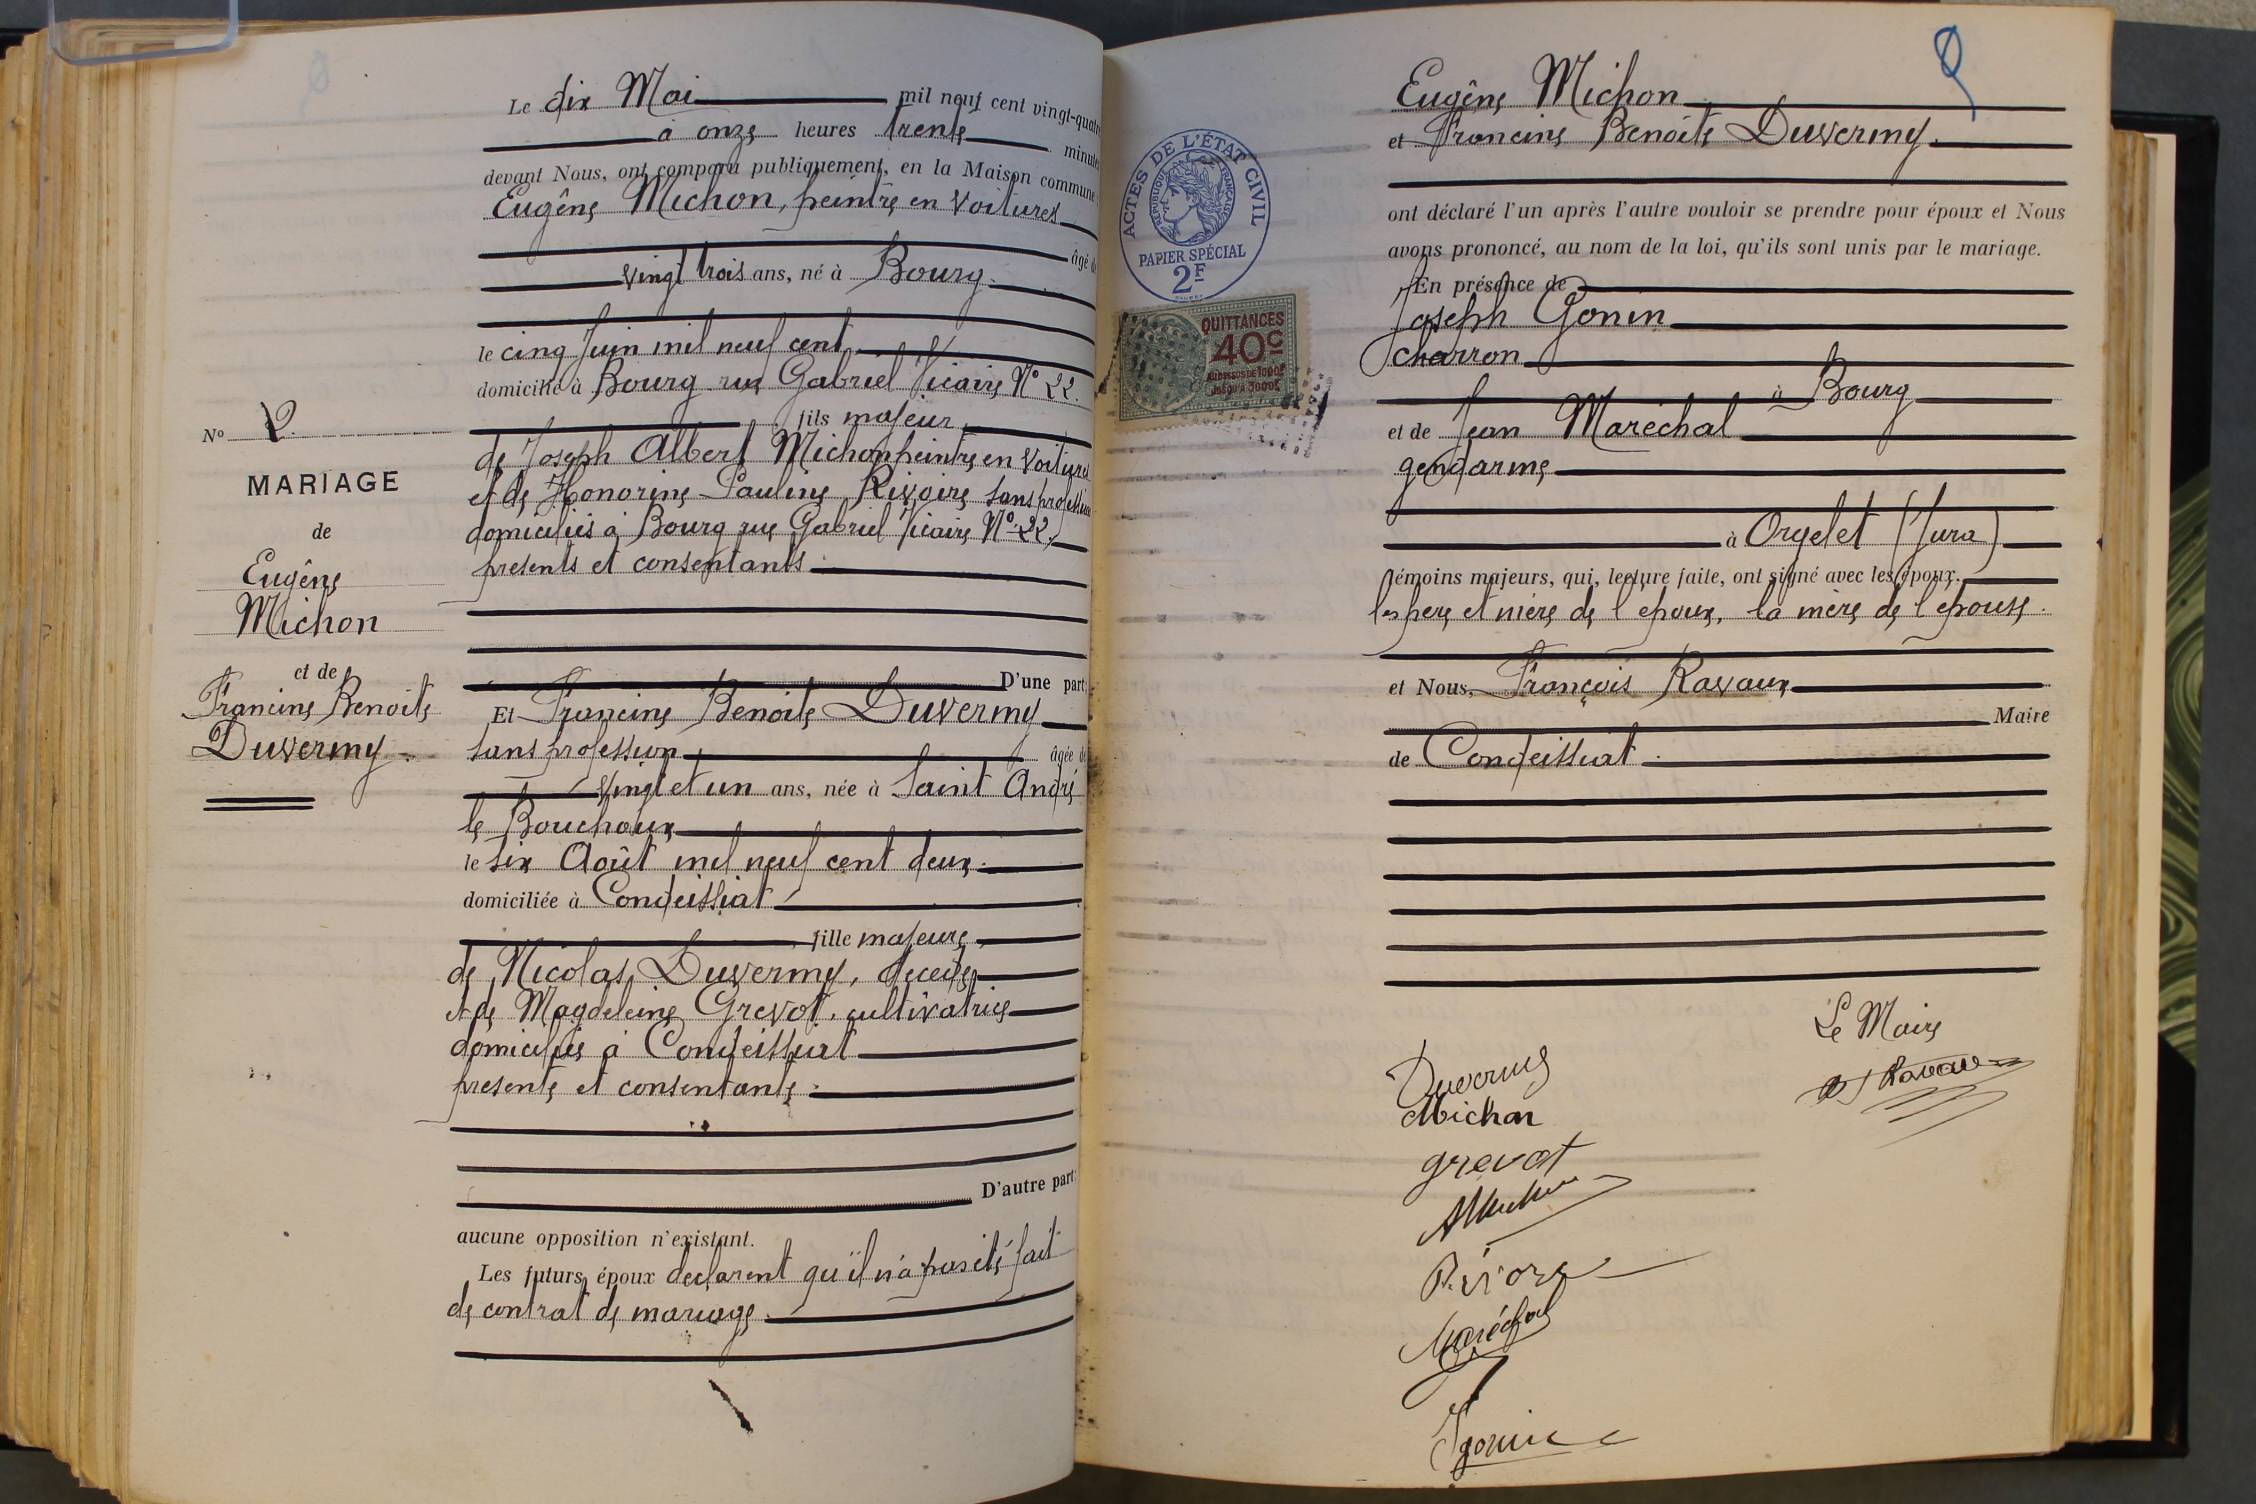 Le dix Mai mil neuf cent vingt-quatre
à onze heures trente minutes
devant Nous, ont comparu publiquement, en la Maison commune
Eugène Michon, peintre en voitures
âgé de
vingt trois ans, né à Bourg
le cinq Juin mil neuf cent
domicilié à Bourg rue Gabriel Vicaire N° 22.
fils majeur
de Joseph Albert Michon peintre en voitures
et de Honorine Pauline Rivoire sans profession
domiciliés à Bourg rue Gabriel Vicaire N° 22.
presents et consentants
D'une part;
Et Francine Benoite Duvermy
sans profession âgée de
vingt et un ans, née à Saint André
le Bouchoux
le six Août mil neuf cent deux.
domiciliée à Condeissiat
fille majeure
de Nicolas Duvermy, decede
et de Magdeleine Grevot, cultivatrice
domiciliés à Condeissiat
presente et consentante.
D'autre part;
aucune opposition n'existant.
Les futurs époux declarent qu'il n'a pas été fait
de contrat de mariage.
N° 2.
MARIAGE
de
Eugène
Michon
et de
Francine Benoite
Duvermy
ACTES DE L'ÉTAT CIVIL
RÉPUBLIQUE FRANÇAISE
PAPIER SPÉCIAL
2F
QUITTANCES
40c
AU DESSUS DE 1000F
JUSQU'A 3000F
Eugène Michon
et Francine Benoite Duvermy.
ont déclaré l'un après l'autre vouloir se prendre pour époux et Nous
avons prononcé, au nom de la loi, qu'ils sont unis par le mariage.
En présence de
Joseph Gonin
charron
à Bourg
et de Jean Maréchal
gendarme
à Orgelet (Jura)
témoins majeurs, qui, lecture faite, ont signé avec les époux.
les père et mère de l'epoux, la mère de l'épouse.
et Nous, François Ravaux
Maire
de Condeissiat.
Le Maire
Ravaux
Duvermy
Michon
grevot
AMichon
Rivoire
Maréchal
J gonin